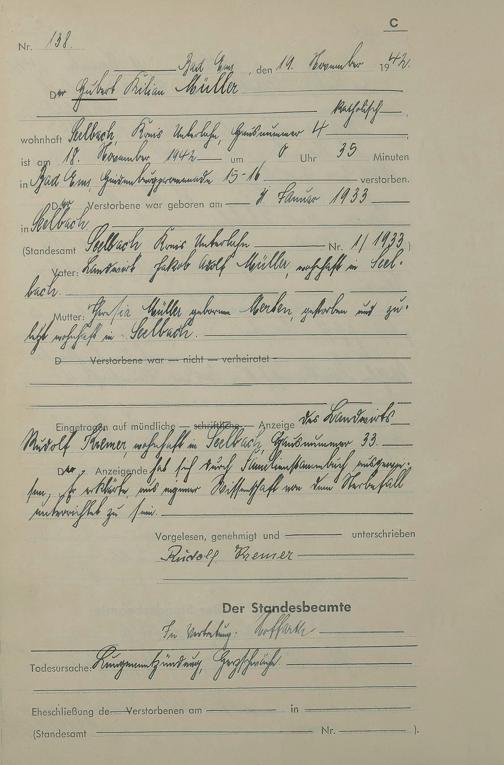 C
Nr. 138.
Bad Ems, den 19. November 1942.
Der Hubert Kilian Müller
katholisch,
wohnhaft Seelbach, Kreis Unterlahn, Hausnummer 4
ist am 18. November 1942 um 0 Uhr 35 Minuten
in Bad Ems, Hindenburgpromenade 15-16 verstorben.
Der Verstorbene war geboren am 4 Januar 1933
in Seelbach
(Standesamt Seelbach Kreis Unterlahn Nr. 1/1933)
Vater: Landwirt Jakob Adolf Müller, wohnhaft in Seel-
bach.
Mutter: Müller geborene Merten, gestorben und zu-
letzt wohnhaft in Seelbach.
D Verstorbene war nicht verheiratet
Eingetragen auf mündliche schriftliche Anzeige des Landwirts
Rudolf Kremer wohnhaft in Seelbach, Hausnummer 33.
Der Anzeigende hat sich durch Familienstammbuch ausgewie-
sen. Er erklärte, aus eigener Wissenschaft von dem Sterbefall
unterrichtet zu sein.
Vorgelesen, genehmigt und unterschrieben
Rudolf Kremer
Der Standesbeamte
In Vertretung:
Todesursache: Lungenentzündung, Herzschwäche
Eheschließung de Verstorbenen am in
(Standesamt Nr. ).